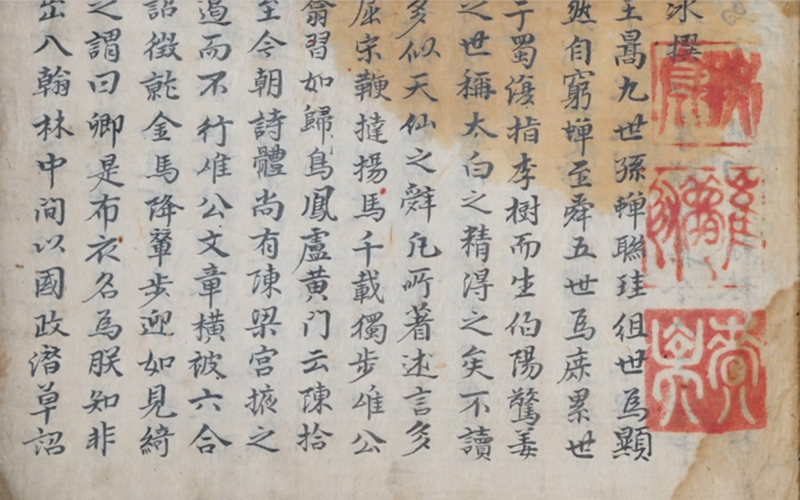 冰撰
王暠九世孫蟬聯珪組世爲顯
然自窮蟬至舜五世爲庶累世
于蜀復指李樹而生伯陽驚姜
之世稱太白之精得之矣不讀
多似天仙之辤凡所著述言多
屈宋鞭撻揚馬千載獨步唯公
翕習如歸鳥鳳盧黄门云陳拾
至今朝詩體尚有陳梁宮掖之
遏而不行唯公文章橫被六合
詔徵就金馬降輦步迎如見綺
之謂曰卿是布衣名爲朕知非
出入翰林中间以國政潛草詔